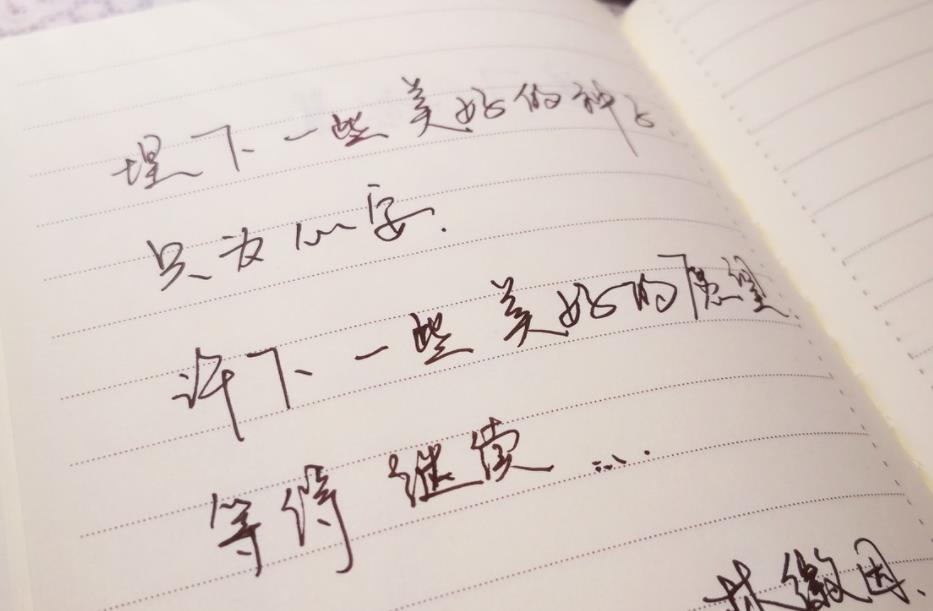 埋下一些美好的种子
只为心安.
许下一些美好的愿望.
等待 继续 ....
林徽因.